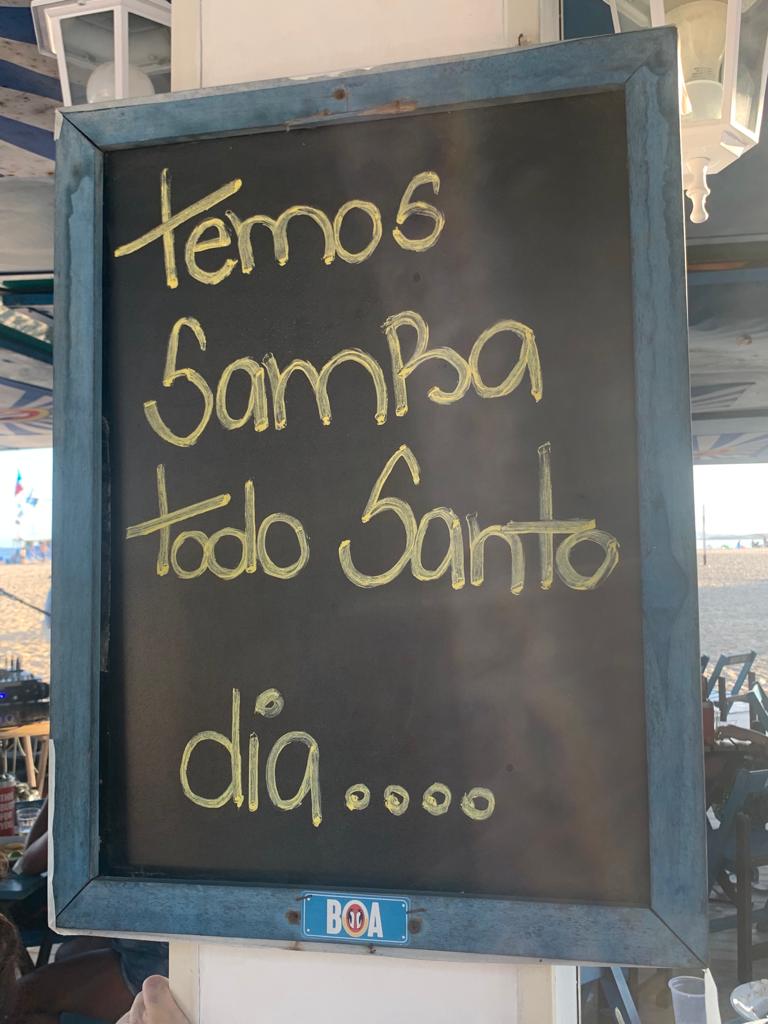 temos
SamBa
todo Santo
dia....
BOA